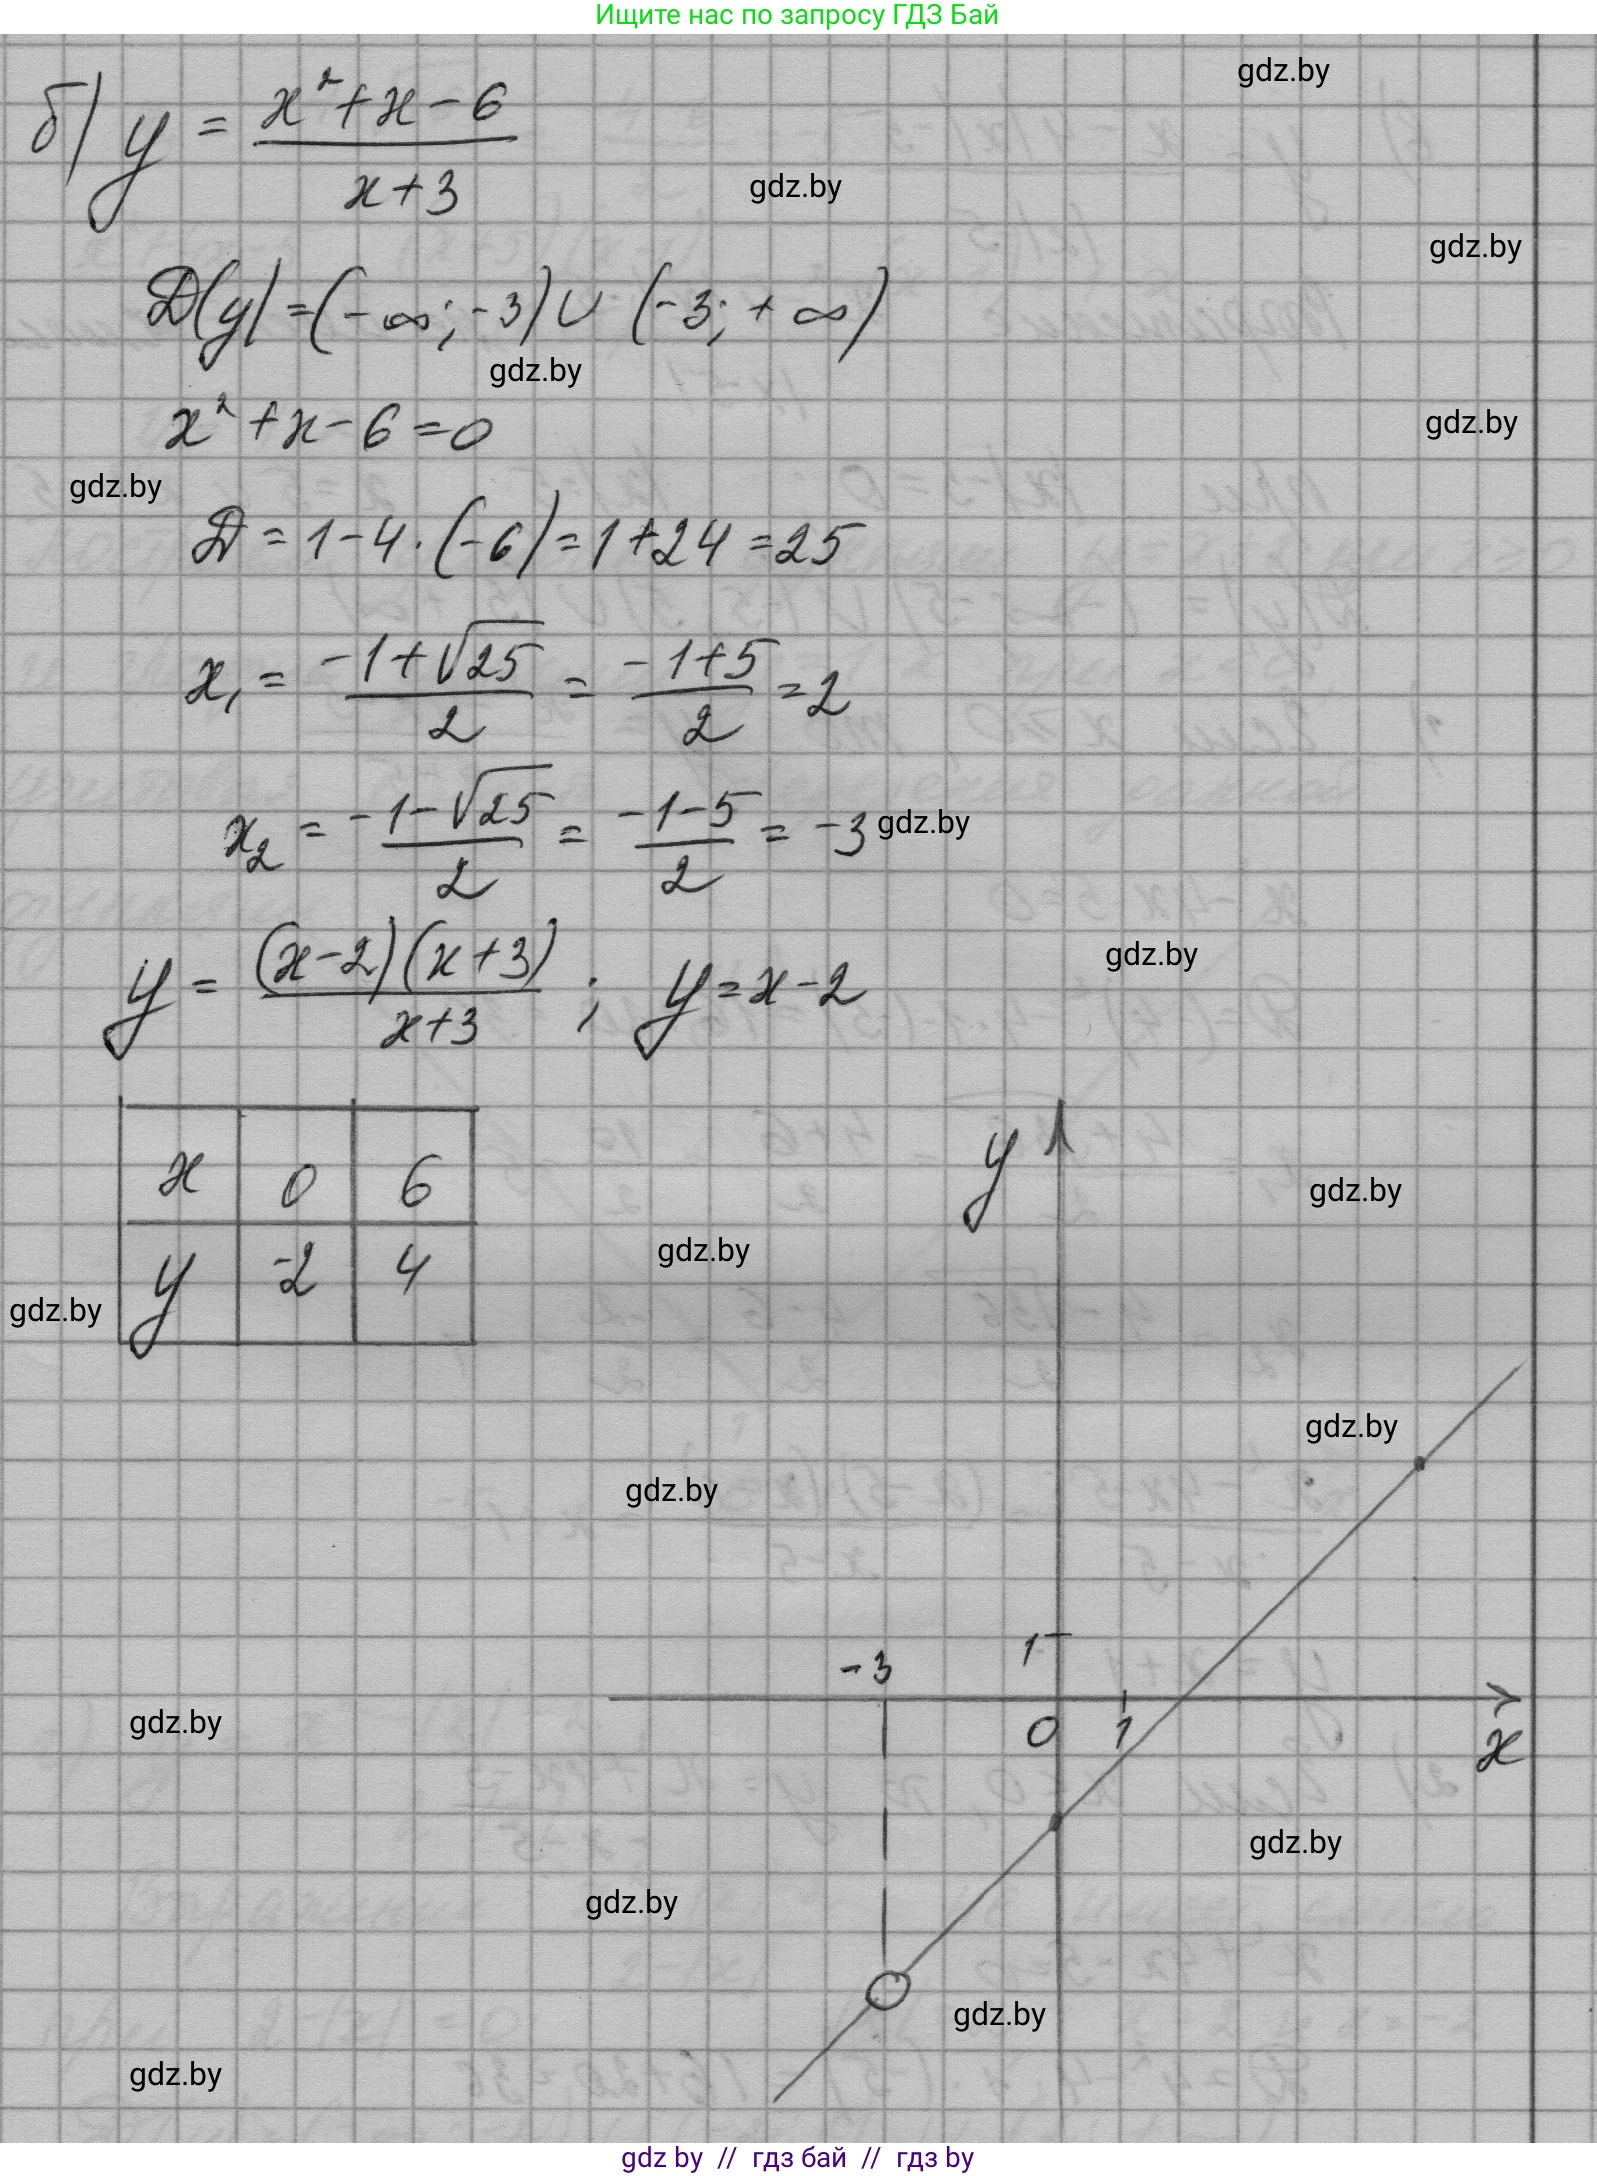 Ищите нас по запросу ГДЗ Бай
gdz.by
б) y = (x² + x - 6)/(x + 3)
gdz.by
gdz.by
D(y) = (-∞; -3) ∪ (-3; +∞)
gdz.by
x² + x - 6 = 0
gdz.by
gdz.by
D = 1 - 4 · (-6) = 1 + 24 = 25
x₁ = (-1 + √25)/2 = (-1 + 5)/2 = 2
x₂ = (-1 - √25)/2 = (-1 - 5)/2 = -3
gdz.by
y = ((x - 2)(x + 3))/(x + 3) ; y = x - 2
gdz.by
x 0 6
y -2 4
y
gdz.by
gdz.by
gdz.by
gdz.by
gdz.by
1
-3
0 1
x
gdz.by
gdz.by
gdz.by
gdz.by
gdz.by
gdz by // гдз бай // гдз by